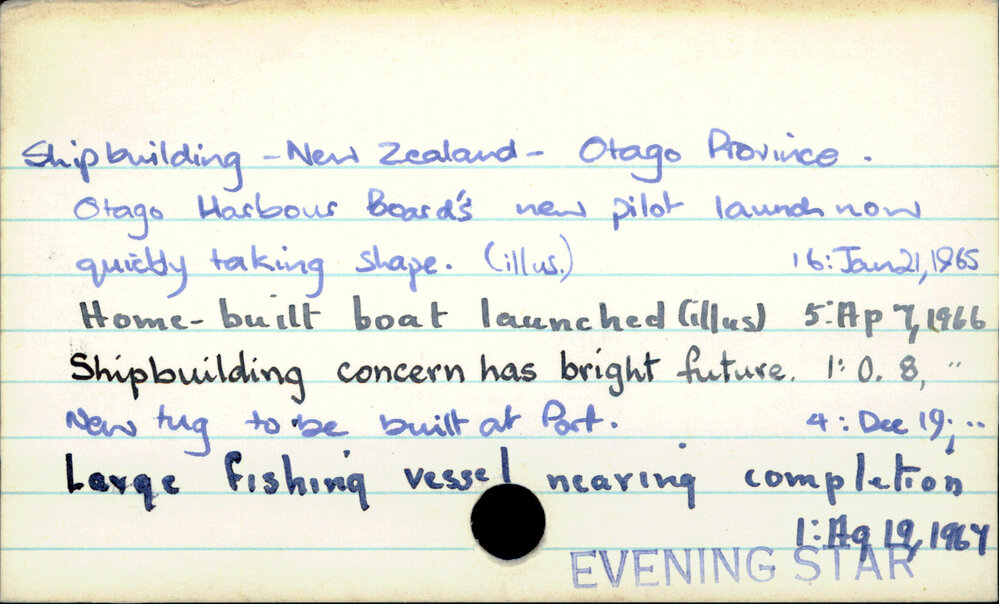 Shipbuilding - New Zealand - Otago Province.
Otago Harbour Board's new pilot launch now
quickly taking shape. (illus.) 16: Jan 21, 1965
Home-built boat launched (illus) 5: Ap 7, 1966
Shipbuilding concern has bright future. 1: O. 8, "
New tug to be built at Port. 4: Dec 19, "
Large fishing vessel nearing completion
1: Ag 19, 1967
EVENING STAR